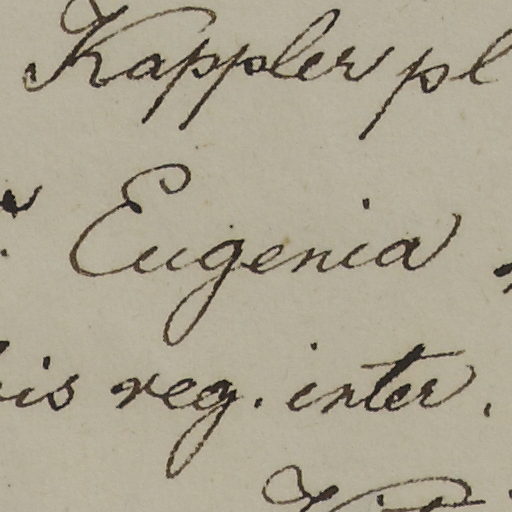 Kappler pl
Eugenia
is reg. inter.